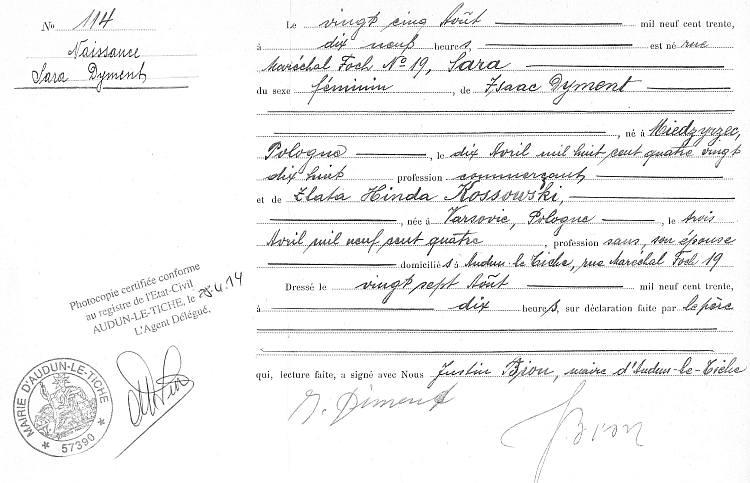 No 114
Naissance
Sara Dyment
Le vingt cinq Août mil neuf cent trente,
à dix neuf heures, est né rue
Maréchal Foch No 19, Sara
du sexe féminin, de Isaac Dyment
, né à Miedzyrzec,
Pologne, le dix Avril mil huit cent quatre vingt
dix huit profession commerçant
et de Zlata Hinda Kossowski,
, née à Varsovie, Pologne, le trois
Avril mil neuf cent quatre, profession sans, son épouse
domiciliés à Audun-le-Tiche, rue Maréchal Foch 19
Dressé le vingt sept Août mil neuf cent trente,
à dix heures, sur déclaration faite par le père
qui, lecture faite, a signé avec Nous Justin Brion, maire d'Audun-le-Tiche
Diment
Brion
Photocopie certifiée conforme
au registre de l'Etat-Civil
AUDUN-LE-TICHE, le 25.4.14
L'Agent Délégué,
MAIRIE D'AUDUN-LE-TICHE
57390